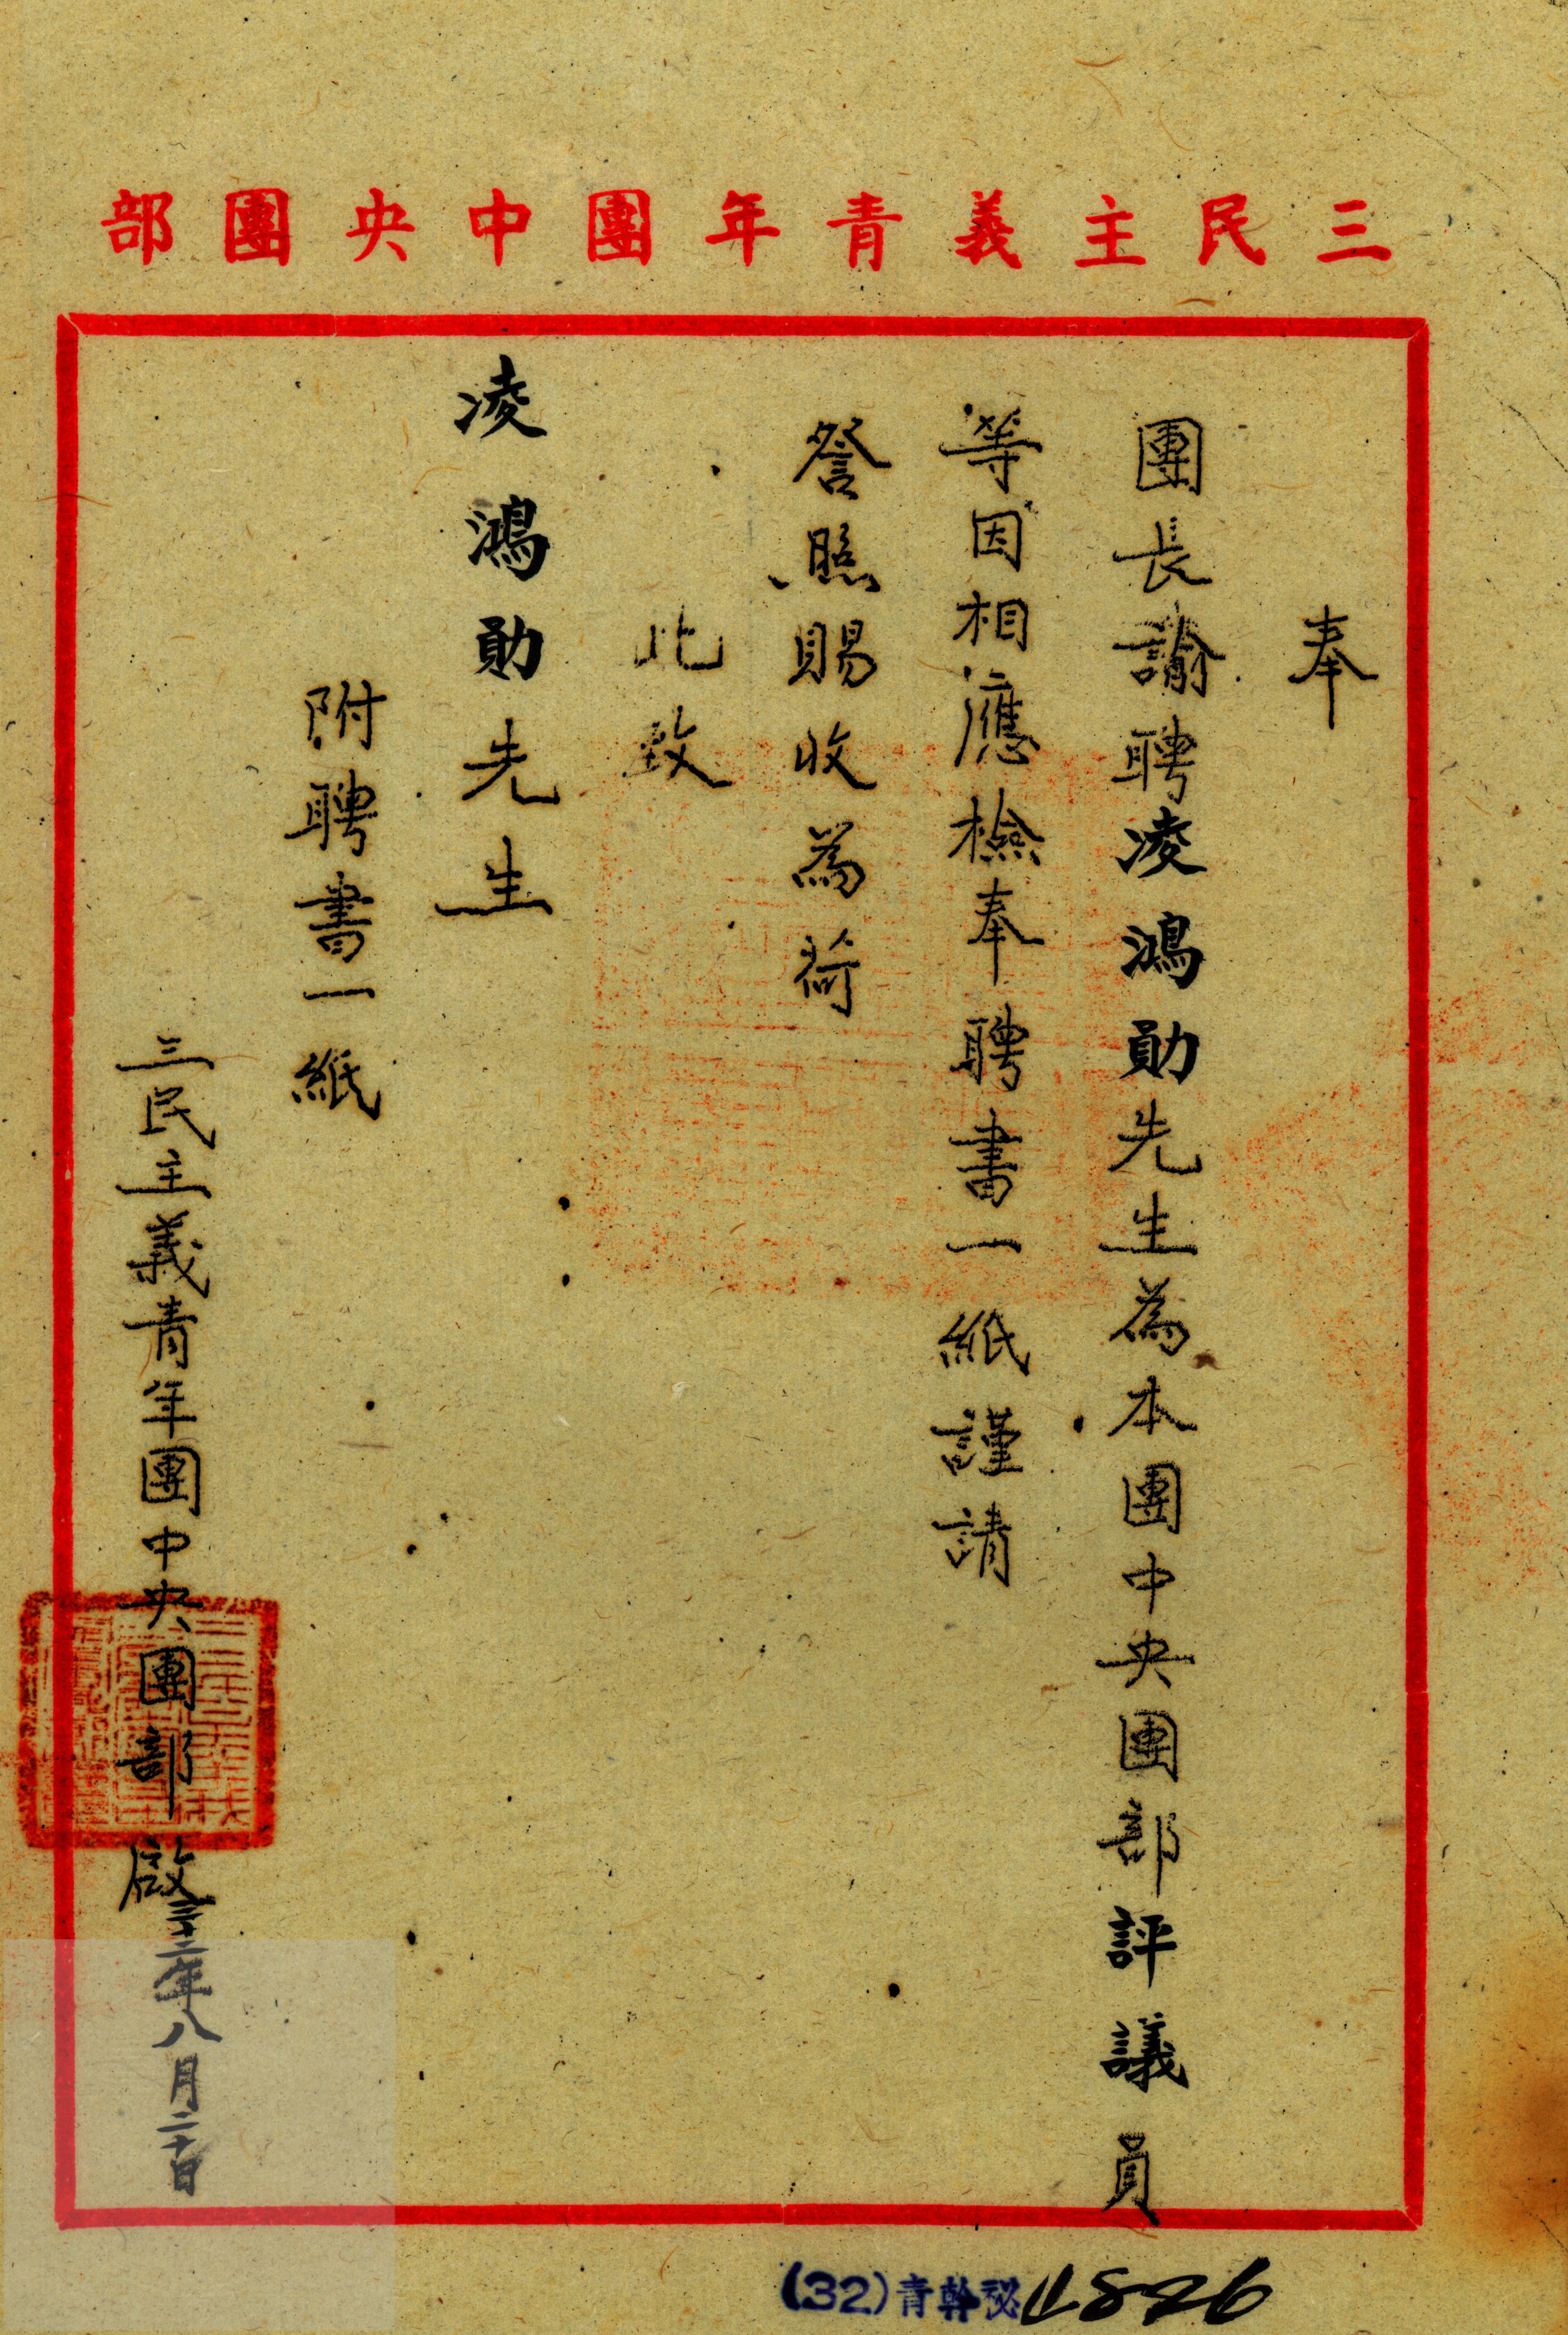 三民主義青年團中央團部
奉
團長諭聘凌鴻勛先生為本團中央團部評議員
等因相應檢奉聘書一紙謹請
詧照賜收為荷
此致
凌鴻勛先生
附聘書一紙
三民主義青年團中央團部啟
三十二年八月二十日
(32)青幹祕